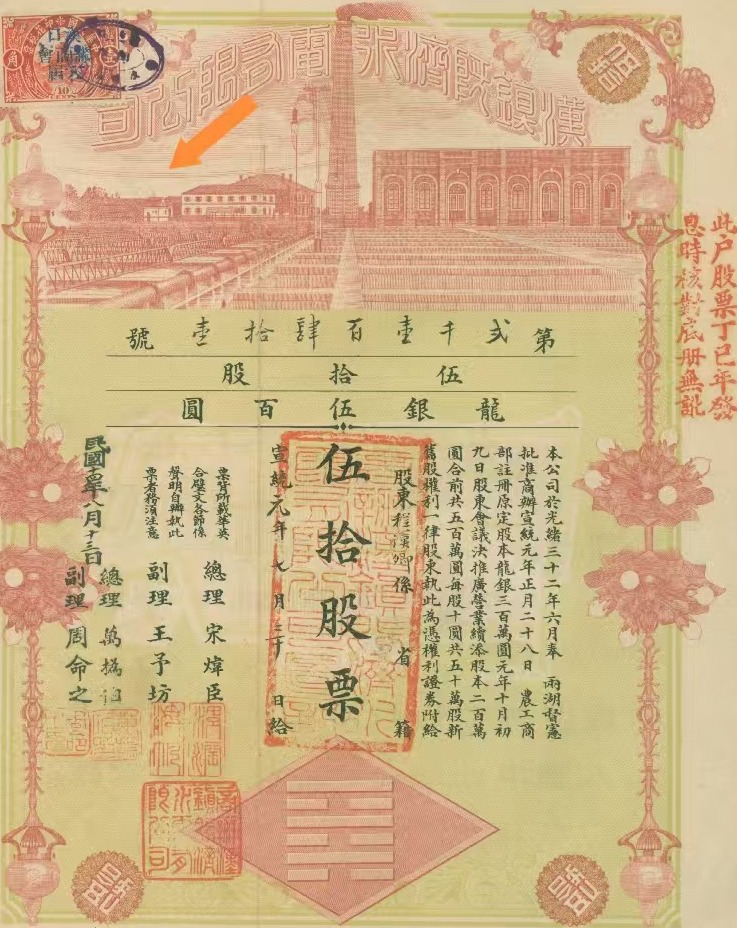 漢鎮既濟水電有限公司
角
10
CENTS
第弍千壹百肆拾壹號
伍拾股
龍銀伍百圓
此户股票丁巳年發
息時核對底册無訛
本公司於光緒三十二年六月奉 兩湖督憲
批准商辦宣統元年正月二十八日 農工商
部註冊原定股本龍銀三百萬圓元年十月初
九日股東會議決推廣營業續添股本二百萬
圓合前共五百萬圓每股十圓共五十萬股新
舊股權利一律股東執此為憑權利證券附給
股東程漢卿係 省 籍
伍拾股票
宣統元年七月 日給
票背所載華英
合璧文各節係
聲明自辦執此
票者務須注意
總理 宋煒臣
副理 王予坊
總理 萬撝伯
副理 周命之
民國 年八月十三日